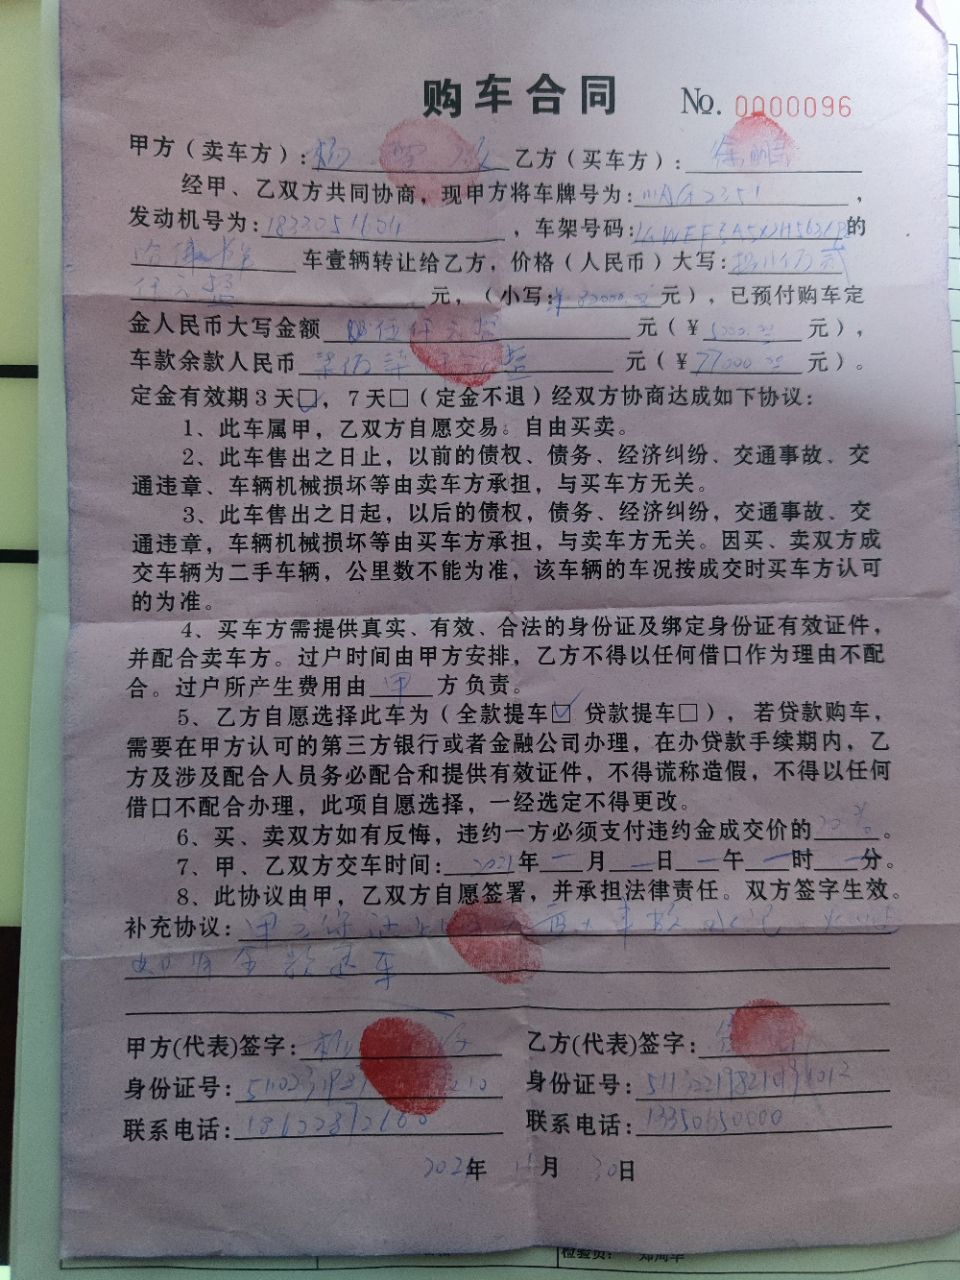 购车合同 №. 0000096
甲方（卖车方）：杨 乙方（买车方）：
经甲、乙双方共同协商，现甲方将车牌号为： ，
发动机号为： ，车架号码： 的
车壹辆转让给乙方，价格（人民币）大写：
仟元整 元，（小写： 元），已预付购车定
金人民币大写金额 伍仟元整 元（￥5000.00 元），
车款余款人民币 元（￥77000.00 元）。
定金有效期3天☑，7天□（定金不退）经双方协商达成如下协议：
1、此车属甲，乙双方自愿交易。自由买卖。
2、此车售出之日止，以前的债权、债务、经济纠纷、交通事故、交
通违章、车辆机械损坏等由卖车方承担，与买车方无关。
3、此车售出之日起，以后的债权，债务、经济纠纷，交通事故、交
通违章，车辆机械损坏等由买车方承担，与卖车方无关。因买、卖双方成
交车辆为二手车辆，公里数不能为准，该车辆的车况按成交时买车方认可
的为准。
4、买车方需提供真实、有效、合法的身份证及绑定身份证有效证件，
并配合卖车方。过户时间由甲方安排，乙方不得以任何借口作为理由不配
合。过户所产生费用由 甲 方负责。
5、乙方自愿选择此车为（全款提车☑ 贷款提车□），若贷款购车，
需要在甲方认可的第三方银行或者金融公司办理，在办贷款手续期内，乙
方及涉及配合人员务必配合和提供有效证件，不得谎称造假，不得以任何
借口不配合办理，此项自愿选择，一经选定不得更改。
6、买、卖双方如有反悔，违约一方必须支付违约金成交价的 20% 。
7、甲、乙双方交车时间：2021年 月 日 午 时 分。
8、此协议由甲，乙双方自愿签署，并承担法律责任。双方签字生效。
补充协议：甲方保证 重大事故
如有全款退车
甲方(代表)签字：杨 乙方(代表)签字：
身份证号： 身份证号：
联系电话： 联系电话：13350650000
年 月30日
检验员：